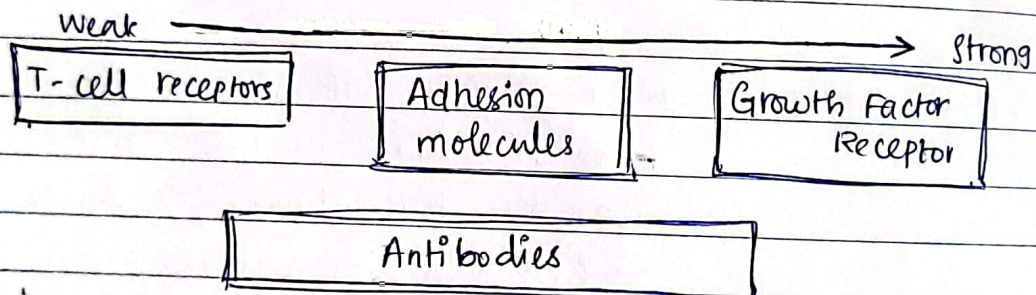 Weak
Strong
T-cell receptors
Adhesion
molecules
Growth Factor
Receptor
Antibodies